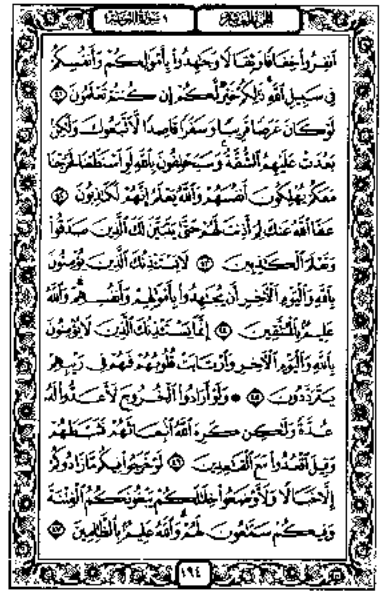 الجزء العاشر ٩ سورة التوبة
انفروا خفافا وثقالا وجهدوا بأمولكم وأنفسكم
في سبيل الله ذلكم خير لكم إن كنتم تعلمون ٤١
لو كان عرضا قريبا وسفرا قاصدا لاتبعوك ولكن
بعدت عليهم الشقة وسيحلفون بالله لو استطعنا لخرجنا
معكم يهلكون أنفسهم والله يعلم إنهم لكاذبون ٤٢
عفا الله عنك لم أذنت لهم حتى يتبين لك الذين صدقوا
وتعلم الكذبين ٤٣ لا يستئذنك الذين يؤمنون
بالله واليوم الآخر أن يجهدوا بأمولهم وأنفسهم والله
عليم بالمتقين ٤٤ إنما يستئذنك الذين لا يؤمنون
بالله واليوم الآخر وارتابت قلوبهم فهم في ريبهم
يترددون ٤٥ ولو أرادوا الخروج لأعدوا له
عدة ولكن كره الله انبعاثهم فثبطهم
وقيل اقعدوا مع القعدين ٤٦ لو خرجوا فيكم ما زادوكم
إلا خبالا ولأوضعوا خللكم يبغونكم الفتنة
وفيكم سمعون لهم والله عليم بالظلمين ٤٧
١٩٤